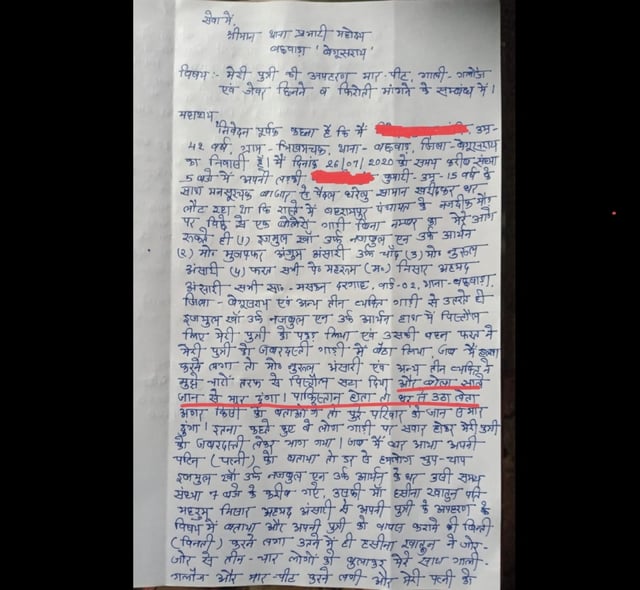 सेवा में,
श्रीमान थाना प्रभारी महोदय
बछवाड़ा 'बेगूसराय'
विषय :- मेरी पुत्री की अपहरण मार-पीट, गाली-गलौज
एवं जेवर छिनने व फिरौती मांगने के सम्बन्ध में।
महाशय,
निवेदन पूर्वक कहना है कि मैं उम्र-
42 वर्ष, ग्राम- थाना- बछवाड़ा, जिला-बेगूसराय
का निवासी हूँ। मैं दिनांक 26/07/2020 को समय करीब संध्या
5 बजे मैं अपनी लड़की कुमारी उम्र-15 वर्ष के
साथ मनसूरचक बाजार से पैदल घरेलु सामान खरीदकर घर
लौट रहा था कि रास्ते में बहरामपुर पंचायत के नजदीक मोड़
पर पिछे से एक बोलेरो गाड़ी बिना नम्बर का मेरे आगे
रूकते ही (1) इजमुल खाँ उर्फ नजमुल एन उर्फ आर्यन
(2) मो० मुजफ्फर अंजुम अंसारी उर्फ चाँद (3) मो० नुरूल
अंसारी (4) फरत सभी पे० महरूम (म०) निसार अहमद
अंसारी- सभी सा०- दरगाह, वार्ड-02, थाना-बछवाड़ा,
जिला- बेगूसराय एवं अन्य तीन व्यक्ति गाड़ी से उतरते ही
इजमुल खाँ उर्फ नजमुल एन उर्फ आर्यन हाथ में पिस्तौल
लिए मेरी पुत्री को पकड़ लिया एवं उसकी बहन फरत ने
मेरी पुत्री को जबरदस्ती गाड़ी में बैठा लिया, जब मैं हल्ला
करने लगा तो मो० नुरूल अंसारी एवं अन्य तीन व्यक्ति ने
मुझे चारो तरफ से पिस्तौल सटा दिया और बोला साले
जान से मार दूंगा। पाकिस्तान होता तो घर से उठा लेता
अगर किसी को बताओगे तो पुरे परिवार को जान से मार
दूंगा। इतना कहते हुए वे लोग गाड़ी पर सवार होकर मेरी पुत्री
को जबरदस्ती लेकर भाग गया। जब मैं घर आया अपनी
पत्नि (पत्नी) को बताया तो डर से हमलोग चुप-चाप
इजमुल खाँ उर्फ नजमुल एन उर्फ आर्यन के घर उसी समय
संध्या 7 बजे के करीब गए, उसकी माँ हसीना खातुन पति-
महरूम निसार अहमद अंसारी से अपनी पुत्री के अपहरण के
विषय में बताया और अपनी पुत्री को वापस कराने की विन्ती
(विनती) करने लगा उतने में ही हसीना खातुन ने जोर-
जोर से तीन-चार लोगों को बुलाकर मेरे साथ गाली-
गलौज और मार-पीट करने लगी और मेरी पत्नी को